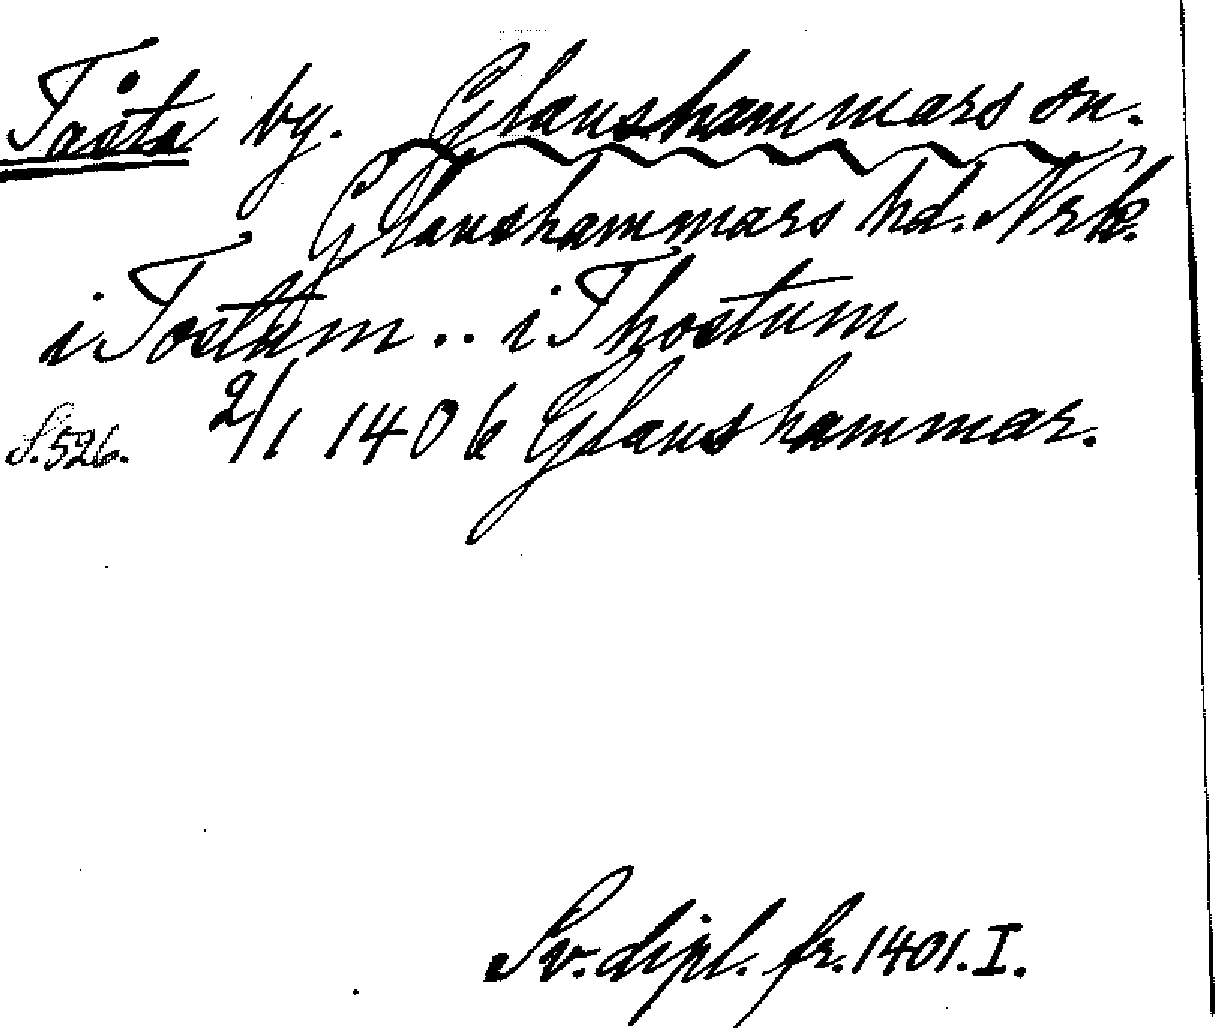 Tåsta by. Glanshammars sn.
Glanshammars hd. Nrk.
i Tostum .. i Thostum
S. 526. 2/1 1406 Glanshammar.
Sv. dipl. fr. 1401. I.